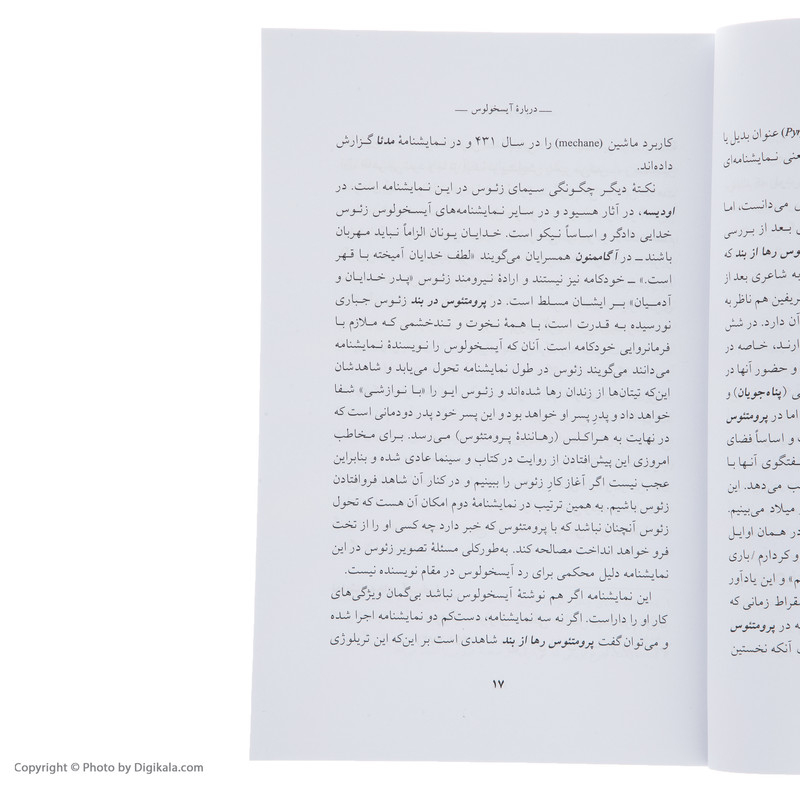 دربارهٔ آیسخولوس
کاربرد ماشین (mechane) را در سال ۴۳۱ و در نمایشنامهٔ مدئا گزارش
داده‌اند.
نکتهٔ دیگر چگونگی سیمای زئوس در این نمایشنامه است. در
اودیسه، در آثار هسیود و در سایر نمایشنامه‌های آیسخولوس زئوس
خدایی دادگر و اساساً نیکو است. خدایان یونان الزاماً نباید مهربان
باشند ــ در آگاممنون همسرایان می‌گویند «لطف خدایان آمیخته با قهر
است.» ــ خودکامه نیز نیستند و ارادهٔ نیرومند زئوس «پدر خدایان و
آدمیان» بر ایشان مسلط است. در پرومتئوس در بند زئوس جباری
نورسیده به قدرت است، با همهٔ نخوت و تندخشمی که ملازم با
فرمانروایی خودکامه است. آنان که آیسخولوس را نویسندهٔ نمایشنامه
می‌دانند می‌گویند زئوس در طول نمایشنامه تحول می‌یابد و شاهدشان
این‌که تیتان‌ها از زندان رها شده‌اند و زئوس ایو را («با نوازشی» شفا
خواهد داد و پدرِ پسر او خواهد بود و این پسر خود پدر دودمانی است که
در نهایت به هراکلس (رهانندهٔ پرومتئوس) می‌رسد. برای مخاطب
امروزی این پیش‌افتادن از روایت در کتاب و سینما عادی شده و بنابراین
عجب نیست اگر آغاز کارِ زئوس را ببینیم و در کنار آن شاهد فروافتادن
زئوس باشیم. به همین ترتیب در نمایشنامهٔ دوم امکان آن هست که تحول
زئوس آنچنان نباشد که با پرومتئوس که خبر دارد چه کسی او را از تخت
فرو خواهد انداخت مصالحه کند. به‌طورکلی مسئلهٔ تصویر زئوس در این
نمایشنامه دلیل محکمی برای رد آیسخولوس در مقام نویسنده نیست.
این نمایشنامه اگر هم نوشتهٔ آیسخولوس نباشد بی‌گمان ویژگی‌های
کار او را داراست. اگر نه سه نمایشنامه، دست‌کم دو نمایشنامه اجرا شده
و می‌توان گفت پرومتئوس رها از بند شاهدی است بر این‌که این تریلوژی
۱۷
عنوان بدیل یا
نمایشنامه‌ای
می‌دانست، اما
بعد از بررسی
رها از بند که
به شاعری بعد از
هم ناظر به
آن دارد. در شش
خاصه در
و حضور آنها در
(پناه‌جویان) و
اما در پرومتئوس
و اساساً فضای
آنها با
می‌دهد. این
میلاد می‌بینیم.
در همان اوایل
و کردارم / باری
» و این یادآور
زمانی که
در پرومتئوس
آنکه نخستین
Copyright © Photo by Digikala.com